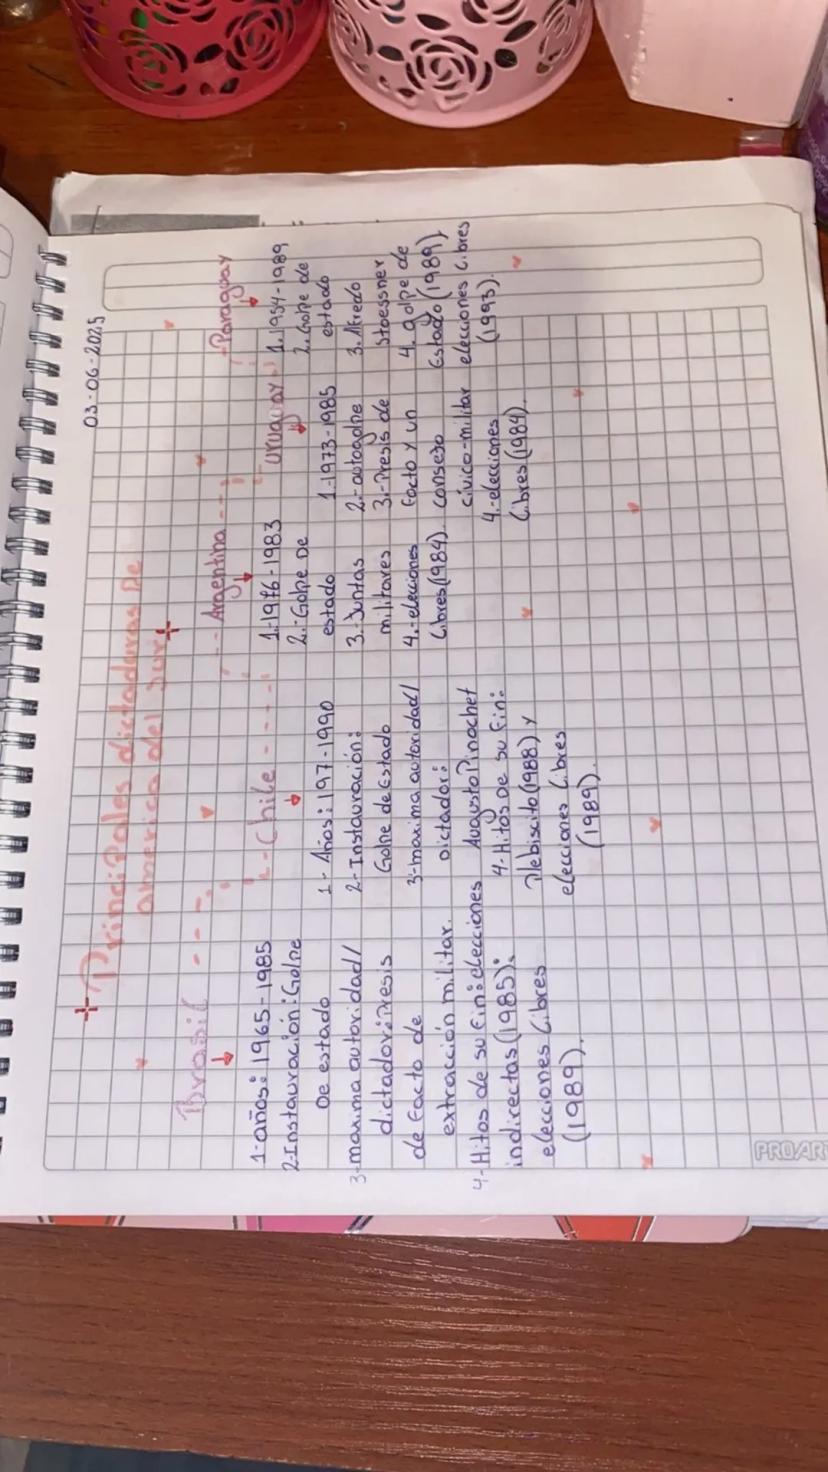 03-06-2025
Principales dictaduras De
america del sur
Brasil
1-años: 1965-1985
2-Instauración: Golpe
De estado
3-maxima autoridad/
dictador: Presis
de facto de
extracción militar.
4-Hitos de su fin: elecciones
indirectas (1985):
elecciones Libres
(1989).
Chile
1- Años: 197-1990
2-Instauración:
Golpe de Estado
3-maxima autoridad/
Dictador:
Augusto Pinochet
4-Hitos De su fin:
Plebiscito (1988) y
elecciones Libres
(1989).
Argentina
1.-1976-1983
2.-Golpe De
estado
3.-Juntas
militares
4.-elecciones
Libres (1984).
uruguay
1.-1973-1985
2.-autogolpe
3.-Presis de
facto y un
consejo
cívico-militar
4.-elecciones
Libres (1984).
Paraguay
1.-1954-1989
2. Golpe de
estado
3. Alfredo
Stoessner
4. golpe de
Estado (1989),
elecciones Libres
(1993).
PROART